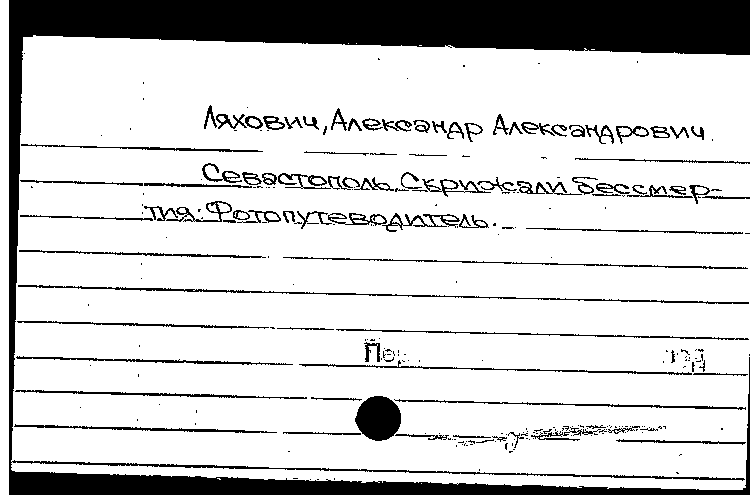 Ляхович, Александр Александрович.
Севастополь. Скрижали бессмер-
тия: Фотопутеводитель.